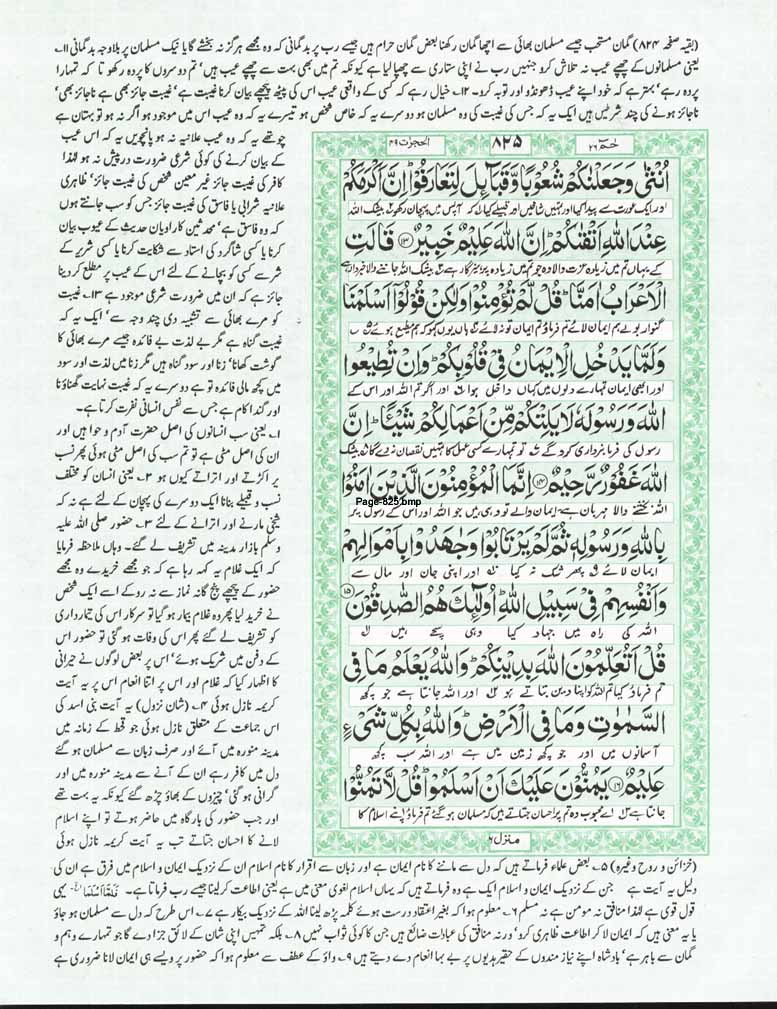 (بقیہ صفحہ ۸۲۴) گمان مستحب جیسے مسلمان بھائی سے اچھا گمان رکھنا بعض گمان حرام ہیں جیسے رب پر بدگمانی کہ وہ مجھے ہرگز نہ بخشے گا یا نیک مسلمان پر بلاوجہ بدگمانی ۱۱؎
یعنی مسلمانوں کے چھپے عیب نہ تلاش کرو جنہیں رب نے اپنی ستاری سے چھپا لیا ہے کیونکہ تم میں بھی بہت سے چھپے عیب ہیں' تم دوسروں کا پردہ رکھو تا کہ تمہارا
پردہ رہے' بہتر ہے کہ خود اپنے عیب ڈھونڈو اور توبہ کرو۔ ۱۲؎ خیال رہے کہ کسی کے واقعی عیب اس کی پیٹھ پیچھے بیان کرنا غیبت ہے' غیبت جائز بھی ہے ناجائز بھی'
ناجائز ہونے کی چند شرطیں ہیں ایک یہ کہ جس کی غیبت کی وہ مسلمان ہو دوسرے یہ کہ خاص شخص ہو تیسرے یہ کہ وہ عیب اس میں موجود ہو اگر نہ ہو تو بہتان ہے
چوتھے یہ کہ وہ عیب علانیہ نہ ہو پانچویں یہ کہ اس عیب
کے بیان کرنے کی کوئی شرعی ضرورت درپیش نہ ہو لہٰذا
کافر کی غیبت جائز غیر معین شخص کی غیبت جائز' ظاہری
علانیہ شرابی یا فاسق کی غیبت جائز جس کو سب جانتے ہوں
کہ وہ فاسق ہے' محدثین کا راویان حدیث کے عیوب بیان
کرنا یا کسی شاگرد کی استاد سے شکایت کرنا یا کسی شریر کے
شر سے کسی کو بچانے کے لئے اس کے عیب پر مطلع کر دینا
جائز ہے کہ ان میں ضرورت شرعی موجود ہے ۱۳؎ غیبت
کو مرے بھائی سے تشبیہ دی چند وجہ سے' ایک یہ کہ
غیبت گناہ ہے مگر بے لذت بے فائدہ جیسے مرے بھائی کا
گوشت کھانا' زنا اور سود گناہ ہیں مگر زنا میں لذت اور سود
میں کچھ مالی فائدہ تو ہے دوسرے یہ کہ غیبت نہایت گھناؤنا
اور گندا کام ہے جس سے نفس انسانی نفرت کرتا ہے۔
۱؎ یعنی سب انسانوں کی اصل حضرت آدم و حوا ہیں اور
ان کی اصل مٹی ہے تو تم سب کی اصل مٹی ہوئی پھر نسب
پر اکڑتے اور اتراتے کیوں ہو ۲؎ یعنی انسان کو مختلف
نسب و قبیلے بنانا ایک دوسرے کی پہچان کے لئے ہے نہ کہ
شیخی مارنے اور اترانے کے لئے ۳؎ حضور صلی اللہ علیہ
وسلم بازار مدینہ میں تشریف لے گئے۔ وہاں ملاحظہ فرمایا
کہ ایک غلام یہ کہہ رہا ہے کہ جو مجھے خریدے وہ مجھے
حضور کے پیچھے پنج گانہ نماز سے نہ روکے اسے ایک شخص
نے خرید لیا پھر وہ غلام بیمار ہو گیا تو سرکار اس کی تیمارداری
کو تشریف لے گئے پھر اس کی وفات ہو گئی تو حضور اس
کے دفن میں شریک ہوئے' اس پر بعض لوگوں نے حیرانی
کا اظہار کیا کہ غلام اور اس پر اتنا انعام اس پر یہ آیت
کریمہ نازل ہوئی ۴؎ (شان نزول) یہ آیت بنی اسد کی
اس جماعت کے متعلق نازل ہوئی جو قحط کے زمانہ میں
مدینہ منورہ میں آئے اور صرف زبان سے مسلمان ہو گئے
دل میں کافر رہے ان کے آنے سے مدینہ منورہ میں
گرانی ہو گئی' چیزوں کے بھاؤ چڑھ گئے کیونکہ یہ بہت تھے
اور جب حضور کی بارگاہ میں حاضر ہوتے تو اپنے اسلام
لانے کا احسان جتاتے تب یہ آیت کریمہ نازل ہوئی
حٰمٓ ۲۶ ۸۲۵ الحجرات ۴۹
اُنْثٰى وَجَعَلْنٰكُمْ شُعُوْبًا وَّقَبَآئِلَ لِتَعَارَفُوْا ؕ اِنَّ اَكْرَمَكُمْ
اور ایک عورت سے پیدا کیا اور تمہیں شاخیں اور قبیلے کیا ۱؎ کہ آپس میں پہچان رکھو ۲؎ بیشک اللہ
عِنْدَ اللّٰهِ اَتْقٰىكُمْ ؕ اِنَّ اللّٰهَ عَلِيْمٌ خَبِيْرٌ ﴿۱۳﴾ قَالَتِ
کے یہاں تم میں زیادہ عزت والا وہ جو تم میں زیادہ پرہیزگار ہے ۳؎ بیشک اللہ جاننے والا خبردار ہے
الْاَعْرَابُ اٰمَنَّا ؕ قُلْ لَّمْ تُؤْمِنُوْا وَلٰكِنْ قُوْلُوْۤا اَسْلَمْنَا
گنوار بولے ہم ایمان لائے تم فرماؤ تم ایمان تو نہ لائے ۴؎ ہاں یوں کہو کہ ہم مطیع ہوئے ۵؎
وَلَمَّا يَدْخُلِ الْاِيْمَانُ فِيْ قُلُوْبِكُمْ ؕ وَاِنْ تُطِيْعُوا
اور ابھی ایمان تمہارے دلوں میں کہاں داخل ہوا ۶؎ اور اگر تم اللہ اور اس کے
اللّٰهَ وَرَسُوْلَهٗ لَا يَلِتْكُمْ مِّنْ اَعْمَالِكُمْ شَيْئًا ؕ اِنَّ
رسول کی فرمانبرداری کرو گے ۷؎ تو تمہارے کسی عمل کا تمہیں نقصان نہ دے گا ۸؎ بیشک
اللّٰهَ غَفُوْرٌ رَّحِيْمٌ ﴿۱۴﴾ اِنَّمَا الْمُؤْمِنُوْنَ الَّذِيْنَ اٰمَنُوْا
Page-825.bmp
اللہ بخشنے والا مہربان ہے ایمان والے تو وہی ہیں جو اللہ اور اس کے رسول پر
بِاللّٰهِ وَرَسُوْلِهٖ ثُمَّ لَمْ يَرْتَابُوْا وَجٰهَدُوْا بِاَمْوَالِهِمْ
ایمان لائے ۹؎ پھر شک نہ کیا ۱۰؎ اور اپنی جان اور مال سے
وَاَنْفُسِهِمْ فِيْ سَبِيْلِ اللّٰهِ ؕ اُولٰٓئِكَ هُمُ الصّٰدِقُوْنَ ﴿۱۵﴾
اللہ کی راہ میں جہاد کیا وہی سچے ہیں ۱۱؎
قُلْ اَتُعَلِّمُوْنَ اللّٰهَ بِدِيْنِكُمْ ؕ وَاللّٰهُ يَعْلَمُ مَا فِي
تم فرماؤ کیا تم اللہ کو اپنا دین بتاتے ہو ۱۲؎ اور اللہ جانتا ہے جو کچھ
السَّمٰوٰتِ وَمَا فِي الْاَرْضِ ؕ وَاللّٰهُ بِكُلِّ شَيْءٍ
آسمانوں میں اور جو کچھ زمین میں ہے اور اللہ سب کچھ
عَلِيْمٌ ﴿۱۶﴾ يَمُنُّوْنَ عَلَيْكَ اَنْ اَسْلَمُوْا ؕ قُلْ لَّا تَمُنُّوْا
جانتا ہے اے محبوب وہ تم پر احسان جتاتے ہیں کہ مسلمان ہو گئے تم فرماؤ اپنے اسلام کا
منزل ۶
(خزائن و روح وغیرہ) ۵؎ بعض علماء فرماتے ہیں کہ دل سے ماننے کا نام ایمان ہے اور زبان سے اقرار کا نام اسلام ان کے نزدیک ایمان و اسلام میں فرق ہے ان کی
دلیل یہ آیت ہے جن کے نزدیک ایمان و اسلام ایک ہے وہ فرماتے ہیں کہ یہاں اسلام لغوی معنی میں ہے یعنی اطاعت کر لینا جیسے رب فرماتا ہے۔ فَلَمَّآ اَسْلَمَا یہی
قول قوی ہے لہٰذا منافق نہ مومن ہے نہ مسلم ۶؎ معلوم ہوا کہ بغیر اعتقاد درست ہوئے کلمہ پڑھ لینا اللہ کے نزدیک بیکار ہے ۷؎ اس طرح کہ دل سے مسلمان ہو جاؤ
یا یہ معنی ہیں کہ ایمان لا کر اطاعت ظاہری کرو' ورنہ منافق کی عبادات ضائع ہیں جن کا کوئی ثواب نہیں ۸؎ بلکہ تمہیں اپنی شان کے لائق جزا دے گا جو تمہارے وہم و
گمان سے باہر ہے' بادشاہ اپنے نیاز مندوں کے حقیر ہدیوں پر بے بہا انعام دے دیتے ہیں ۹؎ واؤ کے عطف سے معلوم ہوا کہ حضور پر ویسے ہی ایمان لانا ضروری ہے